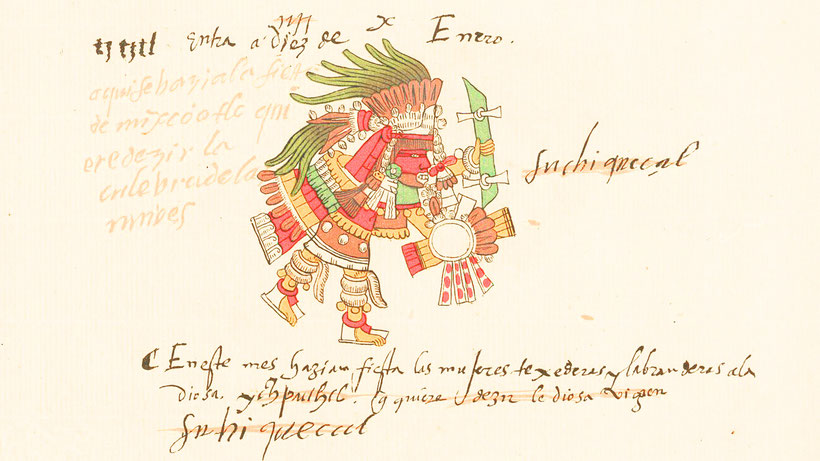 tititl entra a diez de x Enero.
aqui se hazia la fiesta
de mixcoatl q̃ qui
ere dezir la
culebra de las
nuves
Suchiqueçal
En este mes hazian fiesta las mujeres texederas y labranderas a la
diosa. ychpuchtl. q̃ quiere dezir le diosa virgen
Suhiquecal